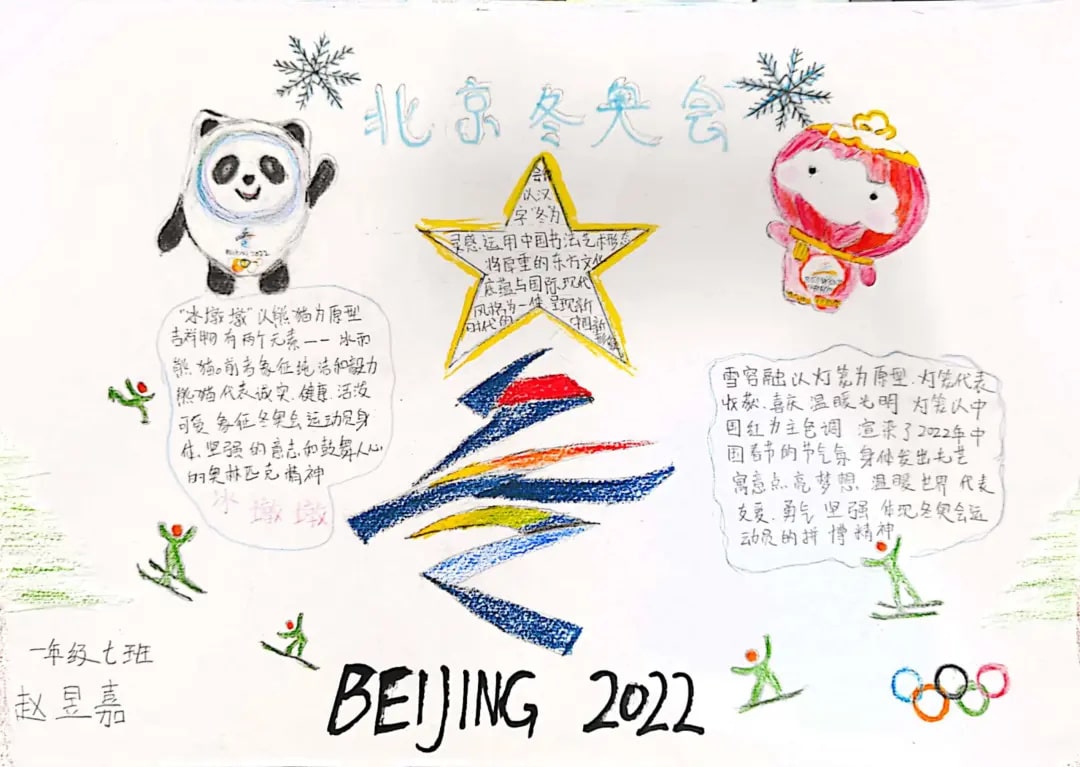 北京冬奥会
会徽
以汉
字"冬"为
灵感.运用中国书法艺术形态
将厚重的东方文化
底蕴与国际.现代
风格为一体 呈现新
时代的 中国新
BEIJING 2022
"冰墩墩"以熊猫为原型
吉祥物 有两个元素——冰和
熊猫。前者象征纯洁和毅力
熊猫代表诚实.健康.活泼
可爱.象征冬奥会运动员身
体.坚强的意志和鼓舞人心
的奥林匹克精神
冰墩墩
雪容融以灯笼为原型.灯笼代表
收获.喜庆.温暖光明 灯笼以中
国红为主色调 渲染了2022年中
国春节的节气氛 身体发出光芒
寓意点亮梦想.温暖世界 代表
友爱.勇气 坚强 体现冬奥会运
动员的拼搏精神
一年级七班
赵昱嘉
BEIJING 2022